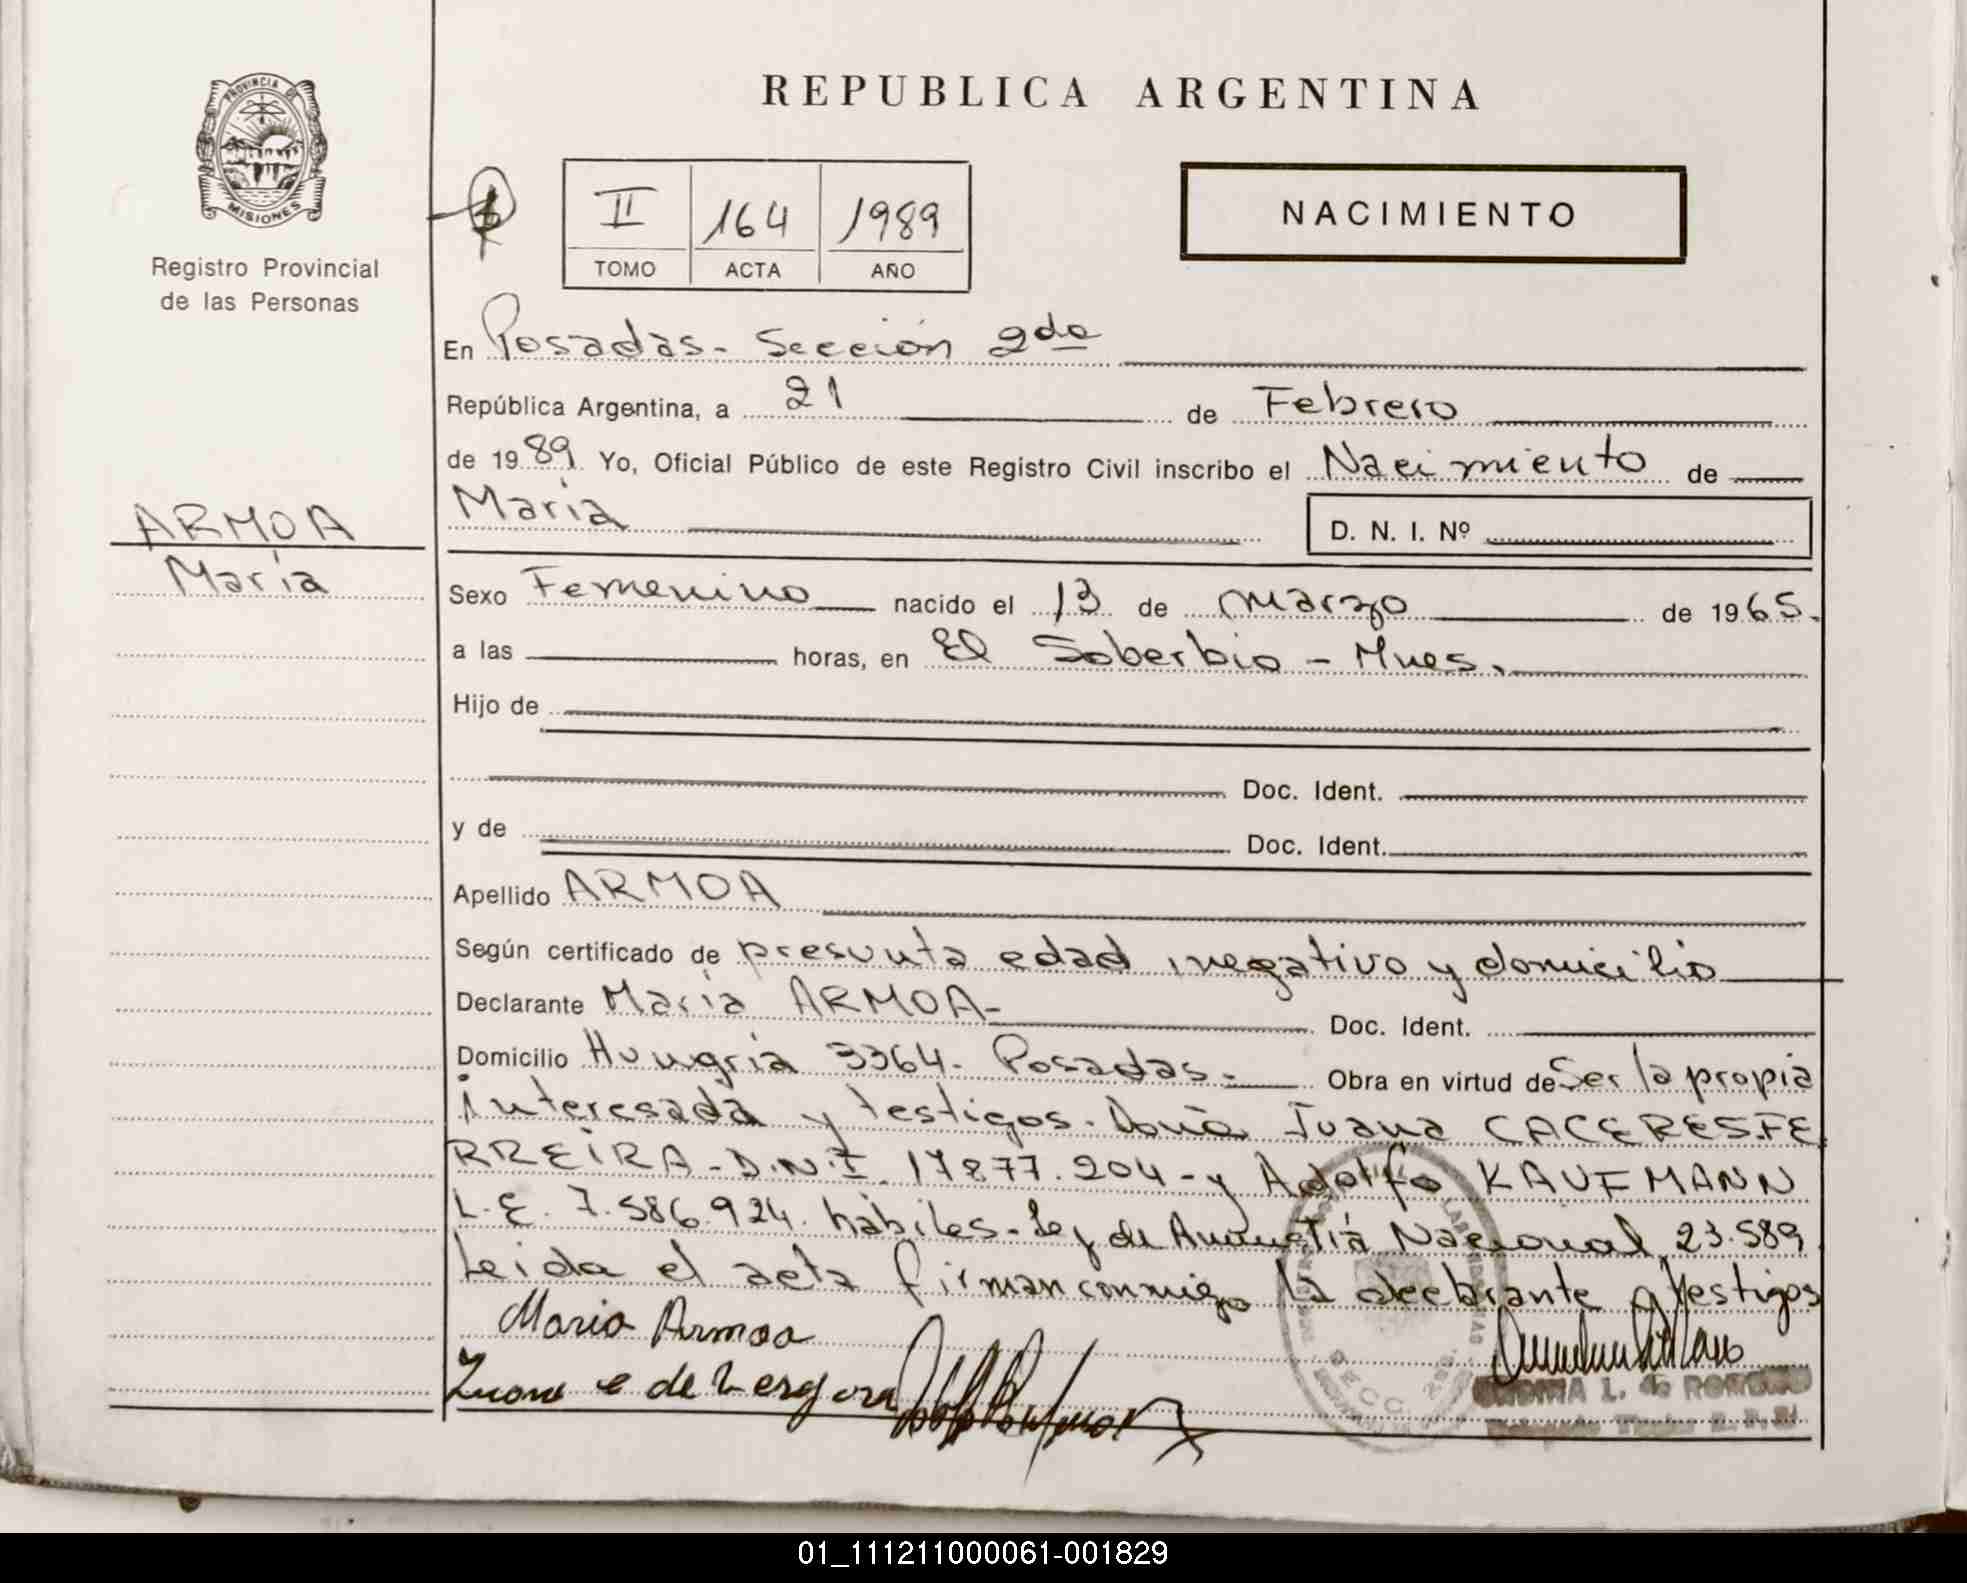 PROVINCIA DE
MISIONES
Registro Provincial
de las Personas
REPUBLICA ARGENTINA
II 164 1989
TOMO ACTA AÑO
NACIMIENTO
En Posadas - Sección 2da
República Argentina, a 21 de Febrero
de 1989 Yo, Oficial Público de este Registro Civil inscribo el Nacimiento de
María D. N. I. Nº
ARMOA
María
Sexo Femenino nacido el 13 de marzo de 1965.
a las horas, en El Soberbio - Mnes.
Hijo de
Doc. Ident.
y de Doc. Ident.
Apellido ARMOA
Según certificado de presunta edad, negativo y domicilio
Declarante María ARMOA- Doc. Ident.
Domicilio Hungría 3364- Posadas.- Obra en virtud de Ser la propia
interesada y testigos. Doña Juana CACERES FE
RREIRA - D.N.I. 17877.204 - y Adolfo KAUFMANN
L.E. 7.586.924. hábiles - Ley de Amnistiá Nacional 23.589
Leida el acta firman conmigo la declarante y testigos
Maria Armoa
L. de
01_111211000061-001829